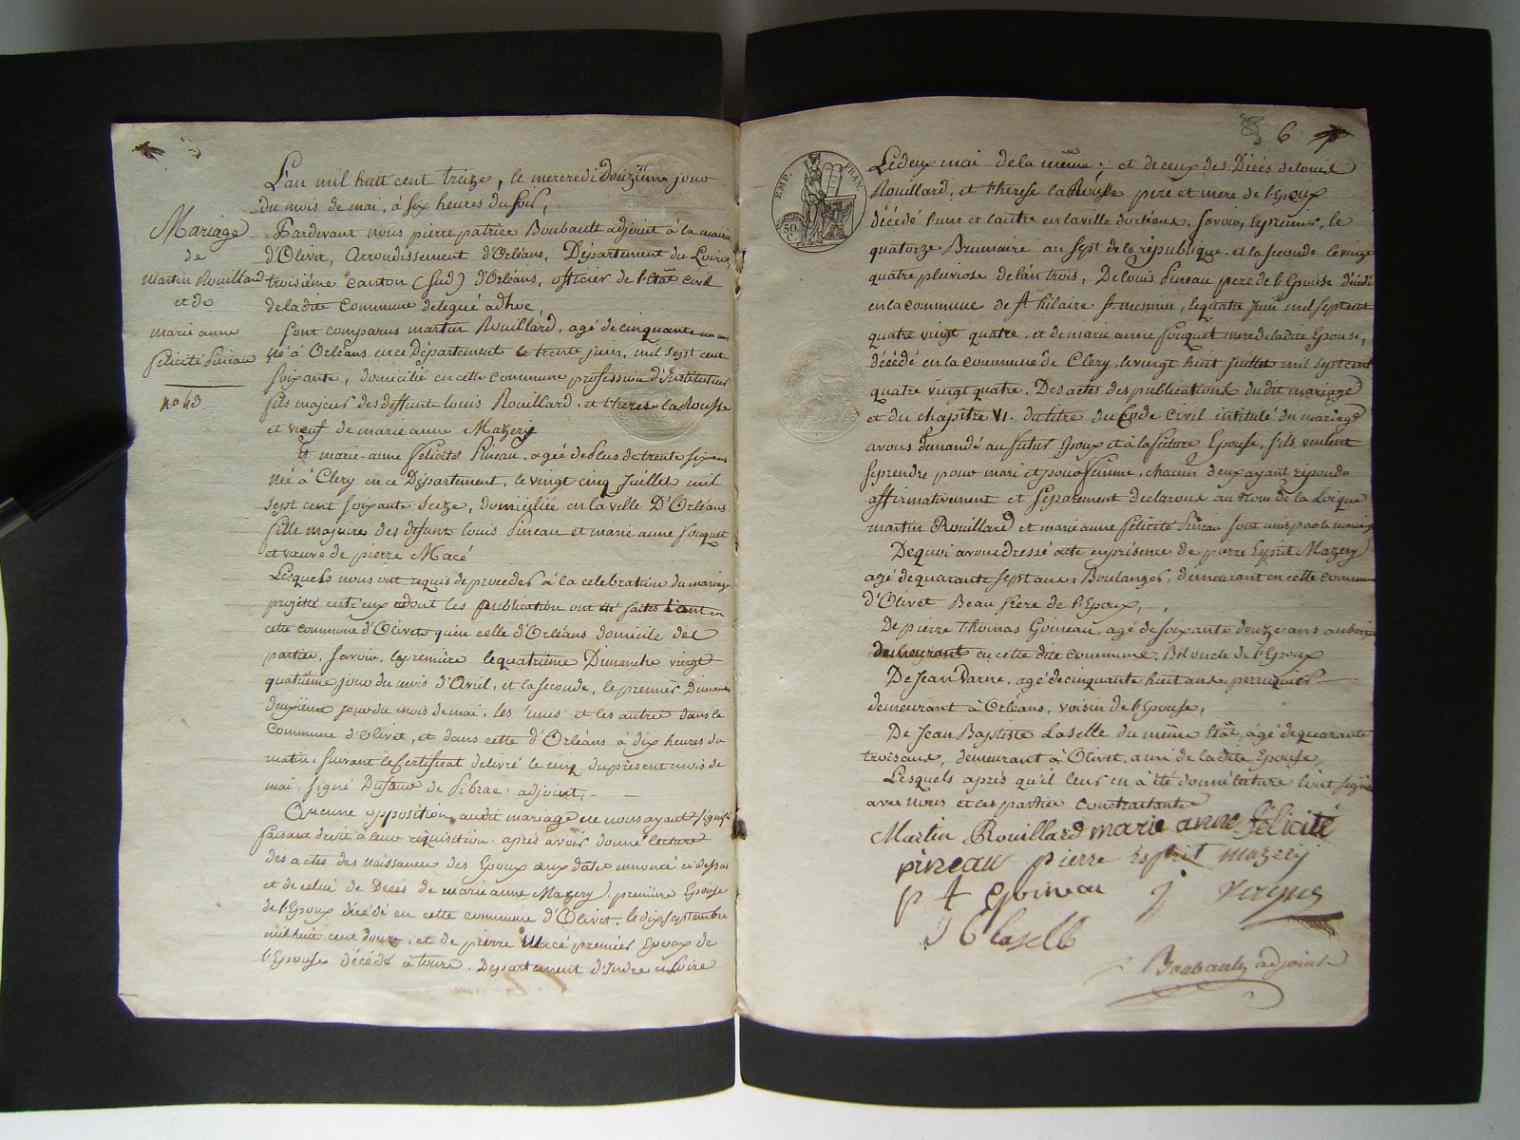 Mariage
de
Martin Rouillard
et de
marie anne
felicité Pineau
L'an mil huit cent treize, le mercredi Douzième jour
du mois de mai, à six heures du soir,
Pardevant nous pierre patrice Boubault adjoint à la mairie
d'Olivet, Arrondissement d'Orléans, Département du Loiret,
troisième Canton (Sud) d'Orléans, officier de l'état civil
de la dite Commune delegué adhoc,
Sont comparus martin Rouillard, agé de cinquante
né à Orléans en ce Département le trente juin, mil sept cent
soixante, domicilié en cette commune profession d'Instituteur
fils majeur des deffunts louis Rouillard, et therese la Rousse
et veuf de marie anne Mazery
Et marie-anne felicité Pineau, agée de plus de trente six ans
née à Clery en ce Département, le vingt cinq Juillet mil
sept cent soixante seize, domiciliée en la ville D'Orléans
fille majeure des defunts louis Pineau et marie anne fouquet
et veuve de pierre Macé
Lesquels nous ont requis de proceder à la celebration du mariage
projetté entr'eux et dont les publication ont été faites tant en
cette commune d'Olivet qu'en celle d'Orléans domicile des
parties, savoir, la première le quatrième Dimanche vingt
quatrième jour du mois d'Avril, et la seconde, le premier Dimanche
deuxième jour du mois de mai, les unes et les autres dans la
Commune d'Olivet, et dans cette d'Orléans à dix heures du
matin, suivant le Certificat delivré le cinq du présent mois de
mai, signé Dufaur de Pibrac, adjoint, -
Aucune opposition audit mariage ne nous ayant signifié
faisant droit à leur réquisition, après avoir donné lecture
des actes des naissances des Epoux aux date enoncé ci dessus
et de celui de Décès de marie anne Mazery première Epouse
de l'Epoux décédé en cette commune d'Olivet, le dix septembre
mil huit cent douze, et de pierre Macé premier Epoux de
l'Epouse décédé à tours, Département d'Indre et Loire
6
EMP. FRAN.
50
Le deux mai de la même, et de ceux des Décès de louis
Rouillard, et therese la Rousse pere et mere de l'Epoux
décédé l'une et l'autre en la ville d'orléans, savoir, le premier, le
quatorze Brumaire an sept de la république, et la seconde le vingt
quatre pluviose de l'an trois, De louis Pineau pere de l'Epouse décédé
en la commune de St hilaire St mesmin, le quatre Juin mil sept cent
quatre vingt quatre, et de marie anne fouquet mere de la dite Epouse,
décédé en la commune de Clery, le vingt huit Juillet mil sept cent
quatre vingt quatre, Des actes des publications du dit mariage
et du chapitre VI. du titre du Code Civil intitulé du mariage
avons demandé au futur Epoux et à la future Epouse, s'ils veulent
se prendre pour mari et pour femme, chacun d'eux ayant répondu
affirmativement et séparement declarons au nom de la Loi que
martin Rouillard et marie anne félicité Pineau sont unis par le mariage
De quoi avons dressé acte en présence de pierre Esprit Mazery
agé de quarante sept ans, Boulanger, demeurant en cette commune
d'Olivet Beau frere de l'Epoux,
De pierre Thomas Goineau, agé de soixante douze ans
demeurant en cette dite commune, Bel oncle de l'Epoux
De Jean agé de cinquante huit ans perruquier
demeurant à Orléans, voisin de l'Epouse,
De Jean Baptiste Laselle du même état, agé de quarante
trois ans, demeurant à Olivet, ami de la dite Epouse,
Lesquels après qu'il leur en a été donné lecture l'ont signé
avec nous et les parties Contractantes
Martin Rouillard marie anne félicité
pineau pierre esprit mazery
p t goineau j
J B laselle
Boubault adjoint